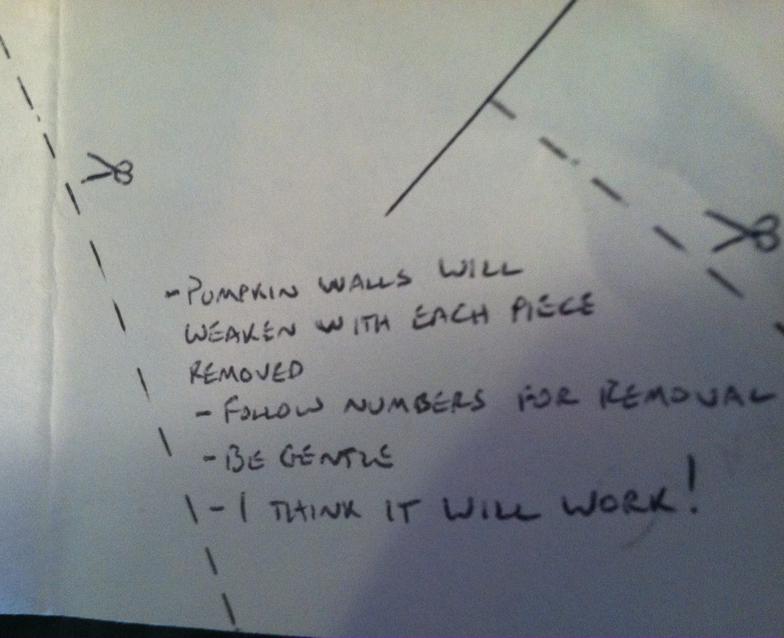 - PUMPKIN WALLS WILL
WEAKEN WITH EACH PIECE
REMOVED
- FOLLOW NUMBERS FOR REMOVAL
- BE GENTLE
- I THINK IT WILL WORK!